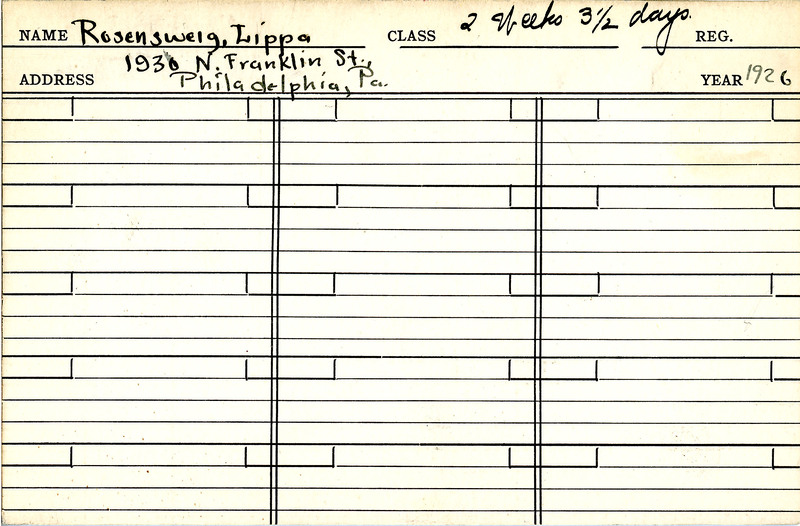 NAME Rosensweig, Lippa CLASS 2 Weeks 3½ days. REG.
ADDRESS 1936 N. Franklin St.,
Philadelphia, Pa. YEAR 1926